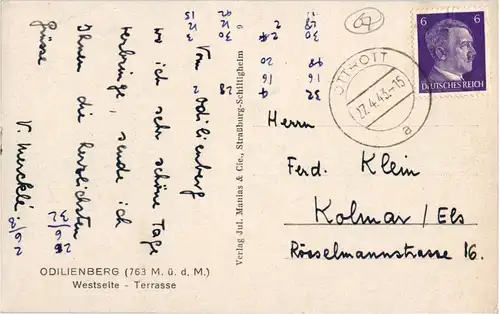 Vom Odilienberg
wo ich sehr schöne Tage
verbringe, sende ich
Ihnen die herzlichsten
Grüsse
V. Mercklé.
ODILIENBERG (763 M. ü. d. M.)
Westseite - Terrasse
Verlag Jul. Manias & Cie., Straßburg-Schiltigheim
67
6 6
DEUTSCHES REICH
OTTROTT
27.4.43-15
a
Herrn
Ferd. Klein
Kolmar / Els
Rösselmannstrasse 16.